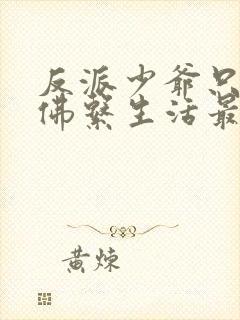 反派少爷只
佛系生活最
黄炼